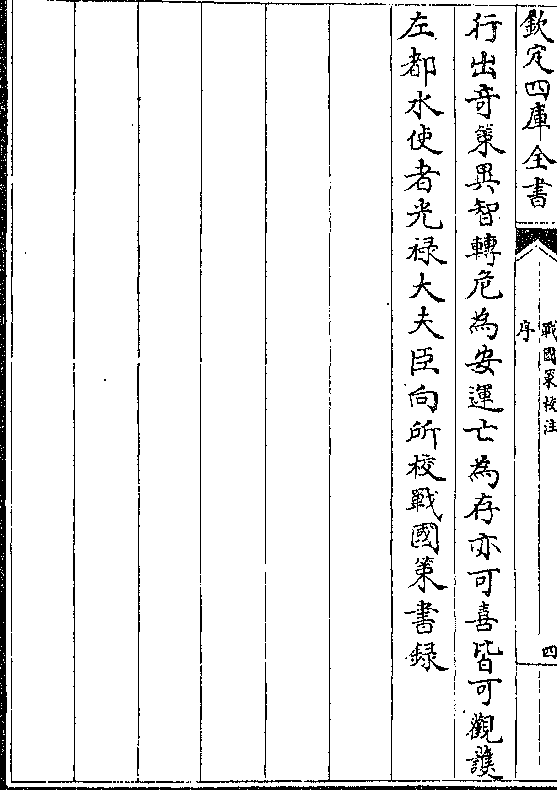 欽定四庫全書
戰國䇿校注
序
四
行出竒䇿異智轉危為安運亡為存亦可喜皆可觀護
左都水使者光禄大夫臣向所校戰國䇿書録